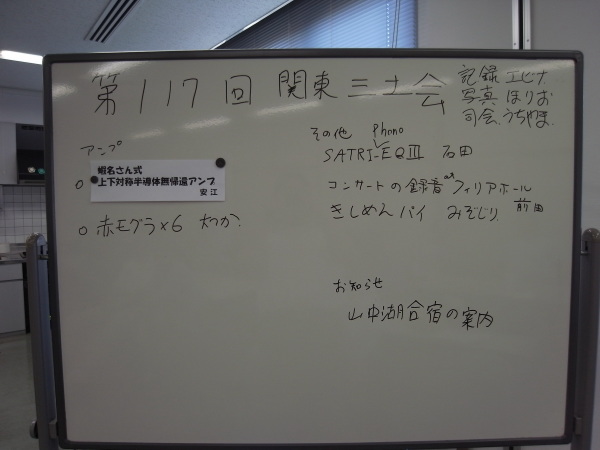 第117回 関東三土会
記録 エビナ
写真 ほりお
司会 うちやま
アンプ
蝦名さん式
上下対称半導体無帰還アンプ
安江
赤モグラ×6
その他 Phono
SATRI-EQⅢ 石田
コンサートの録音 at フィリアホール
前田
きしめんパイ みぞじり
お知らせ
山中湖合宿の案内